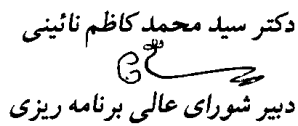 دکتر سید محمد کاظم نائینی
دبیر شورای عالی برنامه ریزی